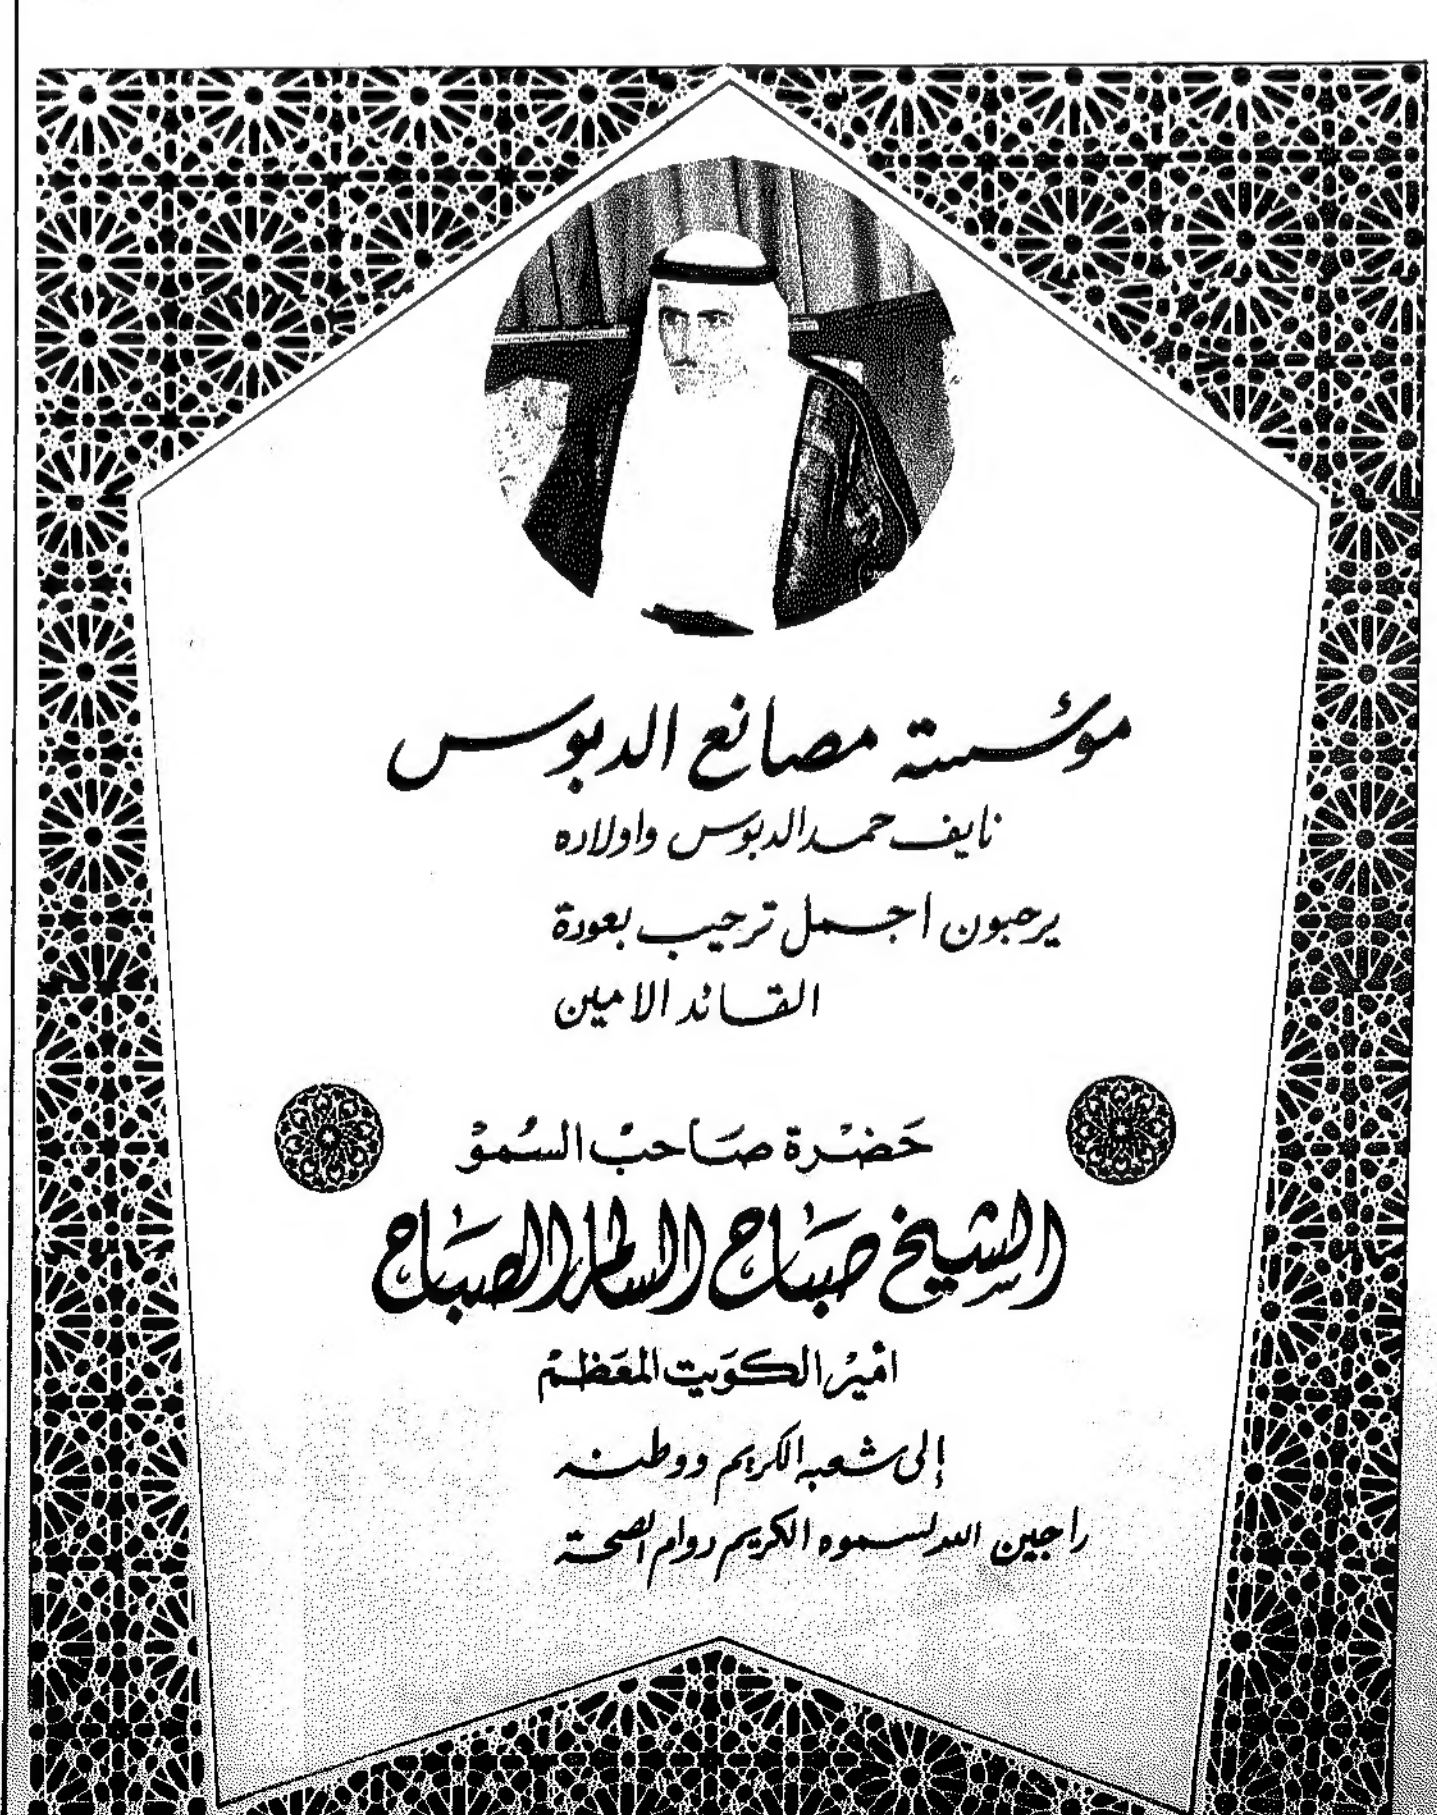 مؤسسة مصانع الدبوس
نايف حمد الدبوس واولاده
يرحبون اجمل ترحيب بعودة
القائد الامين
حَضْرة صَاحبْ السُموْ
الشيخ صباح السالم الصباح
اميْر الكوَيت المعَظمْ
إلى شعبه الكريم ووطنه
راجين الله لسموه الكريم دوام الصحة